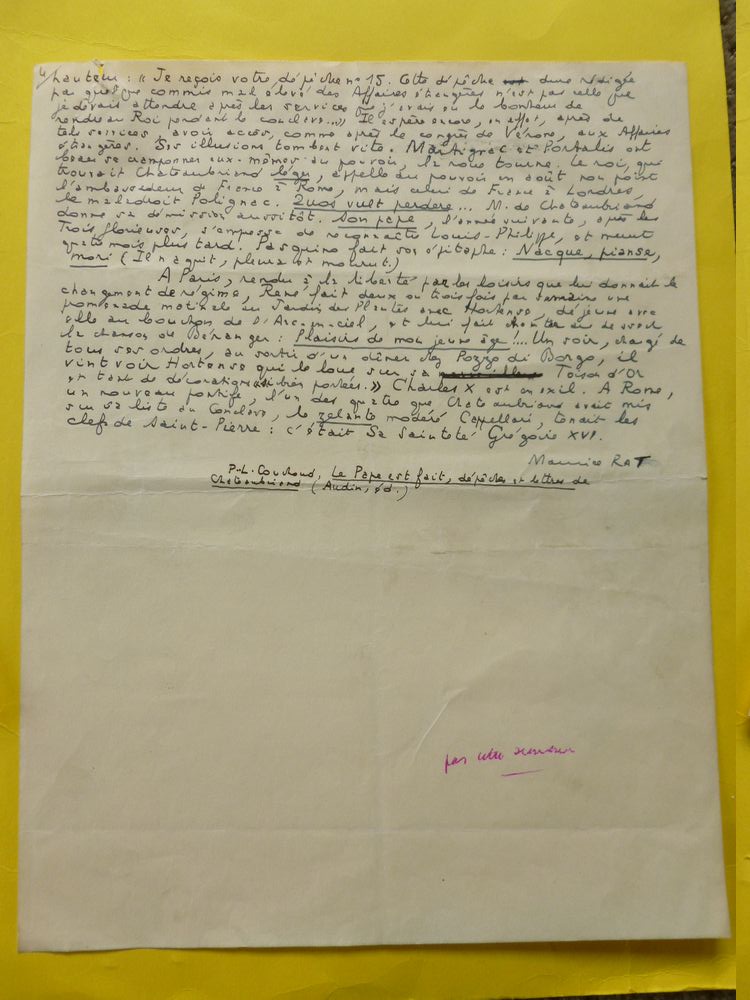 4/
hautain : « Je reçois votre dépêche n° 15. Cette dépêche dure rédigée
par quelque commis mal élevé des Affaires étrangères n'est pas celle que
je devais attendre après les services où j'avais eu le bonheur de
rendre au Roi pendant le conclave...» Il espère encore, en effet, après de
tels services, avoir accès, comme après le congrès de Vérone, aux Affaires
étrangères. Ses illusions tombent vite. Martignac et Portalis ont
beau se cramponner eux-mêmes au pouvoir, la roue tourne. Le roi, que
trouvait Chateaubriand léger, appelle au pouvoir en août non point
l'ambassadeur de France à Rome, mais celui de France à Londres,
le maladroit Polignac. Quos vult perdere... M. de Chateaubriand
donne sa démission aussitôt. Son pape, l'année suivante, après les
Trois glorieuses, s'empresse de reconnaître Louis-Philippe, et meurt
quatre mois plus tard. Pasquino fait son épitaphe : Nacque, pianse,
mori (Il naquit, pleura et mourut.)
A Paris, rendu à la liberté par les loisirs que lui donnait le
changement de régime, René fait deux ou trois fois par semaine une
promenade matinale au Jardin des Plantes avec Hortense, déjeune avec
elle au bouchon de l'Arc-en-ciel, et lui fait chanter au dessert
la chanson de Béranger : Plaisirs de mon jeune âge !... Un soir, chargé de
tous ses ordres, au sortir d'un dîner chez Pozzo di Borgo, il
vint voir Hortense qui le loue sur sa Toison d'Or
et tant de décorations si bien portées. » Charles X est en exil. A Rome,
un nouveau pontife, l'un des quatre que Chateaubriand avait mis
sur sa liste du Conclave, le zelante modéré Cappellari, tenait les
clefs de Saint-Pierre : c'était Sa Sainteté Grégoire XVI.
Maurice RAT
P.-L. Couchoud, Le Pape est fait, dépêches et lettres de
Chateaubriand (Audin, éd.)
par